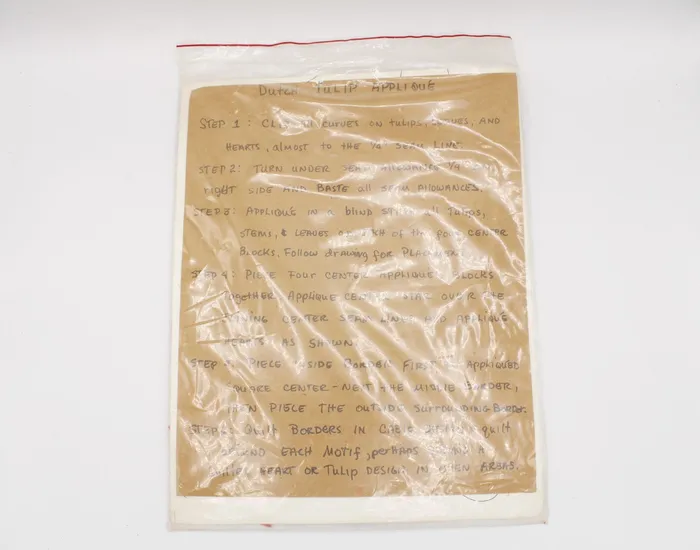 Dutch TULIP APPLIQUE
STEP 1: CLIP curves on tulips, LEAVES, AND
HEARTS, almost to the ¼" SEAM LINE.
STEP 2: TURN UNDER SEAM ALLOWANCE ¼"
RIGHT SIDE AND BASTE all SEAM ALLOWANCES.
STEP 3: APPLIQUÉ IN a blind STITCH all Tulips,
STEMS, & LEAVES ON EACH of the four CENTER
Blocks. Follow drawing for PLACEMENT.
STEP 4: PIECE FOUR CENTER APPLIQUE BLOCKS
Together. Applique CENTER OVER THE
JOINING CENTER SEAM LINES AND APPLIQUE
HEARTS AS SHOWN.
STEP 5: PIECE INSIDE BORDER FIRST TO APPLIQUED
SQUARE CENTER - NEXT THE MIDDLE BORDER,
THEN PIECE THE OUTSIDE SURROUNDING BORDER.
STEP 6: QUILT BORDERS IN CABLE quilt
AROUND EACH MOTIF, perhaps A
HEART OR Tulip DESIGN IN OPEN AREAS.